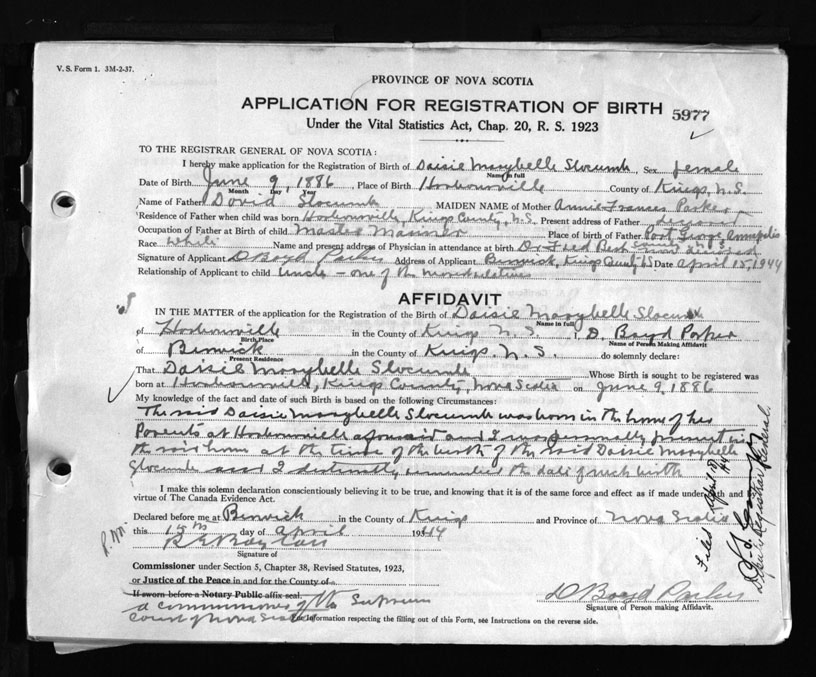 V. S. Form 1. 3M-2-37.
PROVINCE OF NOVA SCOTIA
APPLICATION FOR REGISTRATION OF BIRTH 5977
Under the Vital Statistics Act, Chap. 20, R. S. 1923
TO THE REGISTRAR GENERAL OF NOVA SCOTIA:
I hereby make application for the Registration of Birth of Daisie Marybelle Slocumb, Sex female
Name in full
Date of Birth June 9, 1886, Place of Birth Harbourville County of Kings, N.S.
Month Day Year
Name of Father David Slocumb MAIDEN NAME of Mother Annie Frances Parker
Residence of Father when child was born Harbourville, Kings County, N.S. Present address of Father
Occupation of Father at Birth of child Master Mariner Place of birth of Father Port George Annapolis
County N.S.
Race White Name and present address of Physician in attendance at birth Dr. Fred now deceased
Signature of Applicant D Boyd Parker Address of Applicant Berwick, Kings County NS Date April 15, 1944
Relationship of Applicant to child Uncle - one of the relatives
AFFIDAVIT
IN THE MATTER of the application for the Registration of the Birth of Daisie Marybelle Slocumb
Name in full
of Harbourville in the County of Kings N.S. I, D. Boyd Parker
Birth Place Name of Person Making Affidavit
of Berwick in the County of Kings. N.S. do solemnly declare:
Present Residence
That Daisie Marybelle Slocumb Whose Birth is sought to be registered was
born at Harbourville, Kings County, Nova Scotia on June 9, 1886
My knowledge of the fact and date of such Birth is based on the following Circumstances:
The said Daisie Marybelle Slocumb was born in the home of her
Parents at Harbourville aforesaid and I was personally present in
the said home at the time of the birth of the said Daisie Marybelle
Slocumb and I distinctly remember the date of such birth
I make this solemn declaration conscientiously believing it to be true, and knowing that it is of the same force and effect as if made under oath and
virtue of The Canada Evidence Act.
Declared before me at Berwick in the County of Kings and Province of Nova Scotia
this 15th day of April 1944
Signature of
Commissioner under Section 5, Chapter 38, Revised Statutes, 1923,
or Justice of the Peace in and for the County of
If sworn before a Notary Public affix seal.
a commissioner of the Supreme
Court of Nova Scotia
D Boyd Parker
Signature of Person making Affidavit.
For information respecting the filling out of this Form, see Instructions on the reverse side.
Filed April
Deputy Registrar General.